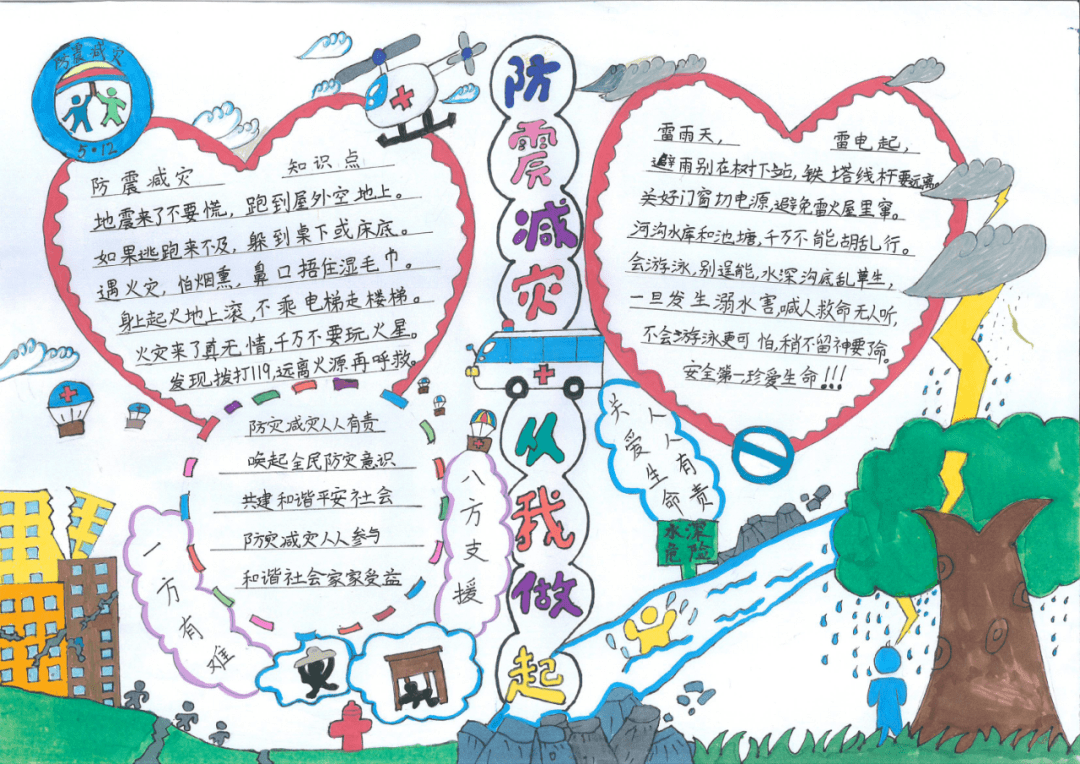 防震减灾
5·12
防震减灾 知识点
地震来了不要慌，跑到屋外空地上。
如果逃跑来不及，躲到桌下或床底。
遇火灾，怕烟熏，鼻口捂住湿毛巾。
身上起火地上滚，不乘电梯走楼梯。
火灾来了真无情，千万不要玩火星。
发现拨打119，远离火源再呼救。
防灾减灾人人有责
唤起全民防灾意识
共建和谐平安社会
防灾减灾人人参与
和谐社会家家受益
一方有难
八方支援
防震减灾
从我做起
雷雨天， 雷电起，
避雨别在树下站，铁塔线杆要远离。
关好门窗切电源，避免雷火屋里窜。
河沟水库和池塘，千万不能胡乱行。
会游泳，别逞能，水深沟底乱草生，
一旦发生溺水害，喊人救命无人听，
不会游泳更可怕，稍不留神要了命。
安全第一珍爱生命！！！
关爱生命
人人有责
水深
危险